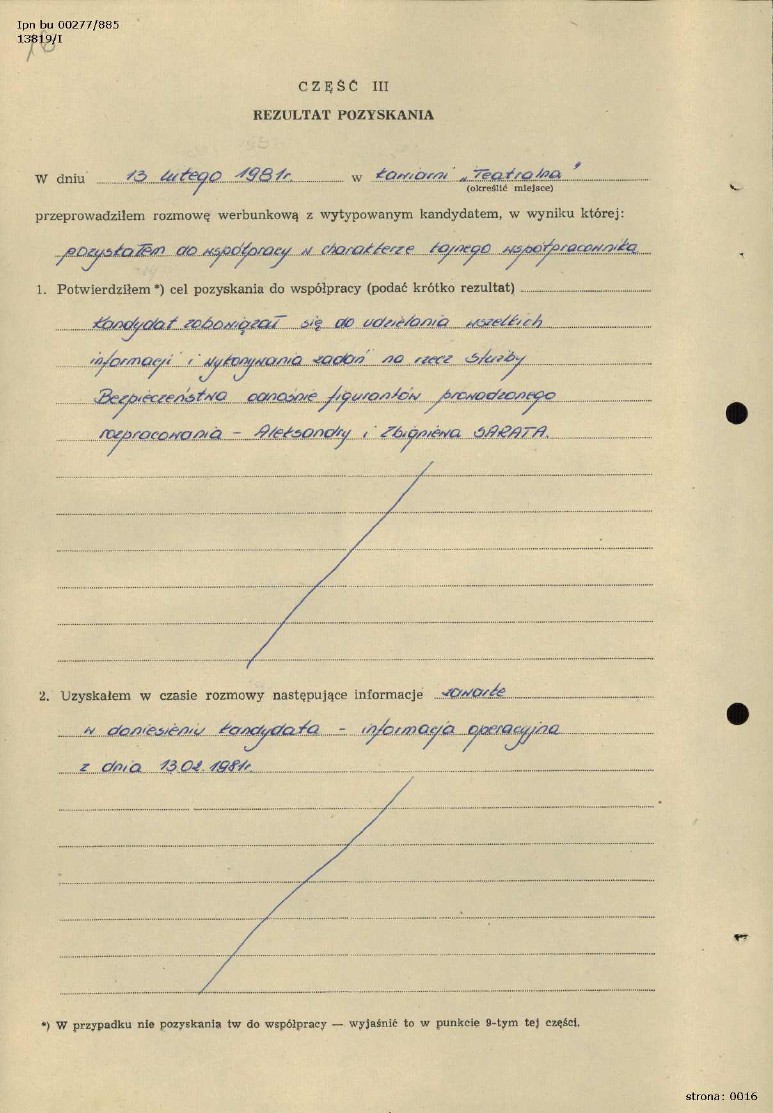 Ipn bu 00277/885
13819/I
CZĘŚĆ III
REZULTAT POZYSKANIA
W dniu 13 lutego 1981r. w kawiarni „Teatralna"
(określić miejsce)
przeprowadziłem rozmowę werbunkową z wytypowanym kandydatem, w wyniku której:
pozyskałem do współpracy w charakterze tajnego współpracownika
1. Potwierdziłem *) cel pozyskania do współpracy (podać krótko rezultat)
Kandydat zobowiązał się do udzielania wszelkich
informacji i wykonywania zadań na rzecz Służby
Bezpieczeństwa odnośnie figurantów prowadzonego
rozpracowania – Aleksandry i Zbigniewa SARATA.
2. Uzyskałem w czasie rozmowy następujące informacje zawarte
w doniesieniu kandydata – informacja operacyjna
z dnia 13.02.1981r.
*) W przypadku nie pozyskania tw do współpracy — wyjaśnić to w punkcie 9-tym tej części.
strona: 0016